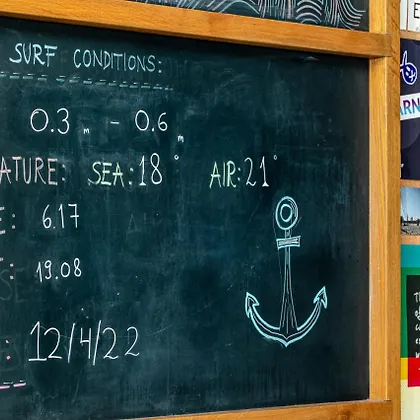 SURF CONDITIONS:
0.3 m - 0.6 m
ATURE: SEA: 18° AIR: 21°
E: 6.17
: 19.08
: 12/4/22
ARN